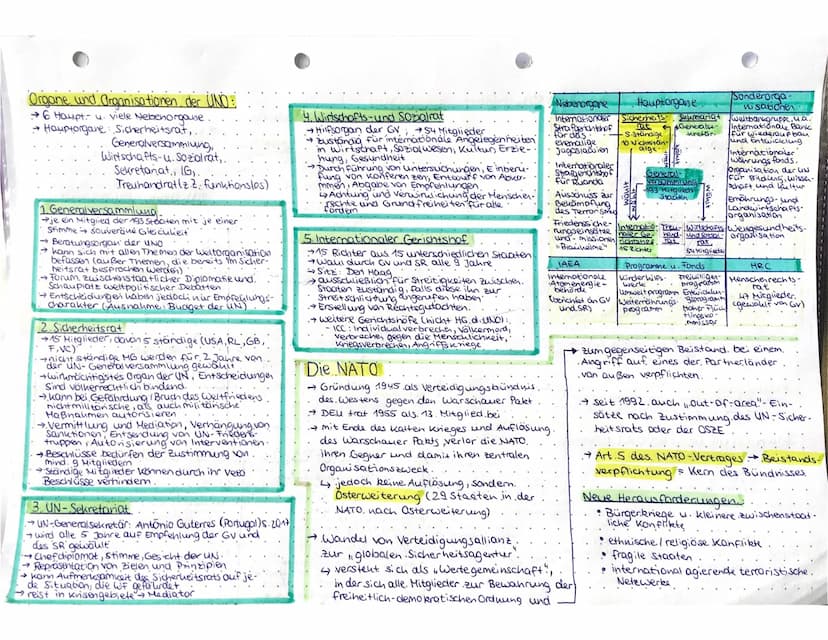 Organe und Organisationen der UNO:
→ 6 Haupt- u. viele Nebenorgane
→ Hauptorgane: Sicherheitsrat,
Generalversammlung,
Wirtschafts- u. Sozialrat,
Sekretariat, IG,
Treuhandrat (z.Z. funktionslos)
1. Generalversammlung
→ je ein Mitglied der 193 Staaten mit je einer
Stimme → souveräne Gleichheit
→ Beratungsorgan der UNO
→ kann sich mit allen Themen der Weltorganisation
befassen (außer Themen, die bereits im Sicher-
heitsrat besprochen werden)
→ Forum zwischenstaatlicher Diplomatie und
Schauplatz weltpolitischer Debatten
→ Entscheidungen haben jedoch nur Empfehlungs-
charakter (Ausnahme: Budget der UN)
2. Sicherheitsrat
→ 15 Mitglieder, davon 5 ständige (USA, RL, GB,
F, VC)
→ nicht ständige MG werden für 2 Jahre von
der UN-Generalversammlung gewählt
→ wichtigstes Organ der UN, Entscheidungen
sind völkerrechtlich bindend
→ kann bei Gefährdung/Bruch des Weltfriedens
nichtmilitärische, als auch militärische
Maßnahmen autorisieren
→ Vermittlung und Mediation, Verhängung von
Sanktionen, Entsendung von UN-Friedens-
truppen, Autorisierung von Interventionen
→ Beschlüsse bedürfen der Zustimmung von
mind. 9 Mitgliedern
→ ständige Mitglieder können durch ihr Veto
Beschlüsse verhindern
3. UN-Sekretariat
→ UN-Generalsekretär: António Guterres (Portugal) s. 2017
→ wird alle 5 Jahre auf Empfehlung der GV und
des SR gewählt
→ Chefdiplomat, Stimme, Gesicht der UN
→ Repräsentation von Zielen und Prinzipien
→ kann Aufmerksamkeit des Sicherheitsrats auf je-
de Situation, die WF gefährdet
→ reist in Krisengebiete → Mediator
4. Wirtschafts- und Sozialrat
→ Hilfsorgan der GV, → 54 Mitglieder
→ zuständig für internationale Angelegenheiten
in Wirtschaft, Sozialwesen, Kultur, Erzie-
hung, Gesundheit
→ Durchführung von Untersuchungen, Einberu-
fung von Konferenzen, Entwurf von Abkom-
men, Abgabe von Empfehlungen
→ Achtung und Verwirklichung der Menschen-
rechte und Grundfreiheiten für alle
fördern
5. Internationaler Gerichtshof
→ 15 Richter aus 15 unterschiedlichen Staaten
→ Wahl durch GV und SR alle 9 Jahre
→ Sitz: Den Haag
→ ausschließlich für Streitigkeiten zwischen
Staaten zuständig, falls diese ihn zur
Streitschlichtung angerufen haben
→ Erstellung von Rechtsgutachten
→ weitere Gerichtshöfe (nicht HG d. UNO):
- ICC: Individualverbrechen, Völkermord,
Verbrechen gegen die Menschlichkeit,
Kriegsverbrechen, Angriffskriege
Die NATO
→ Gründung 1945 als Verteidigungsbündnis
des Westens gegen den Warschauer Pakt
→ DEU trat 1955 als 13. Mitglied bei
→ mit Ende des Kalten Krieges und Auflösung
des Warschauer Pakts, verlor die NATO
ihren Gegner und damit ihren zentralen
Organisationszweck
↳ jedoch keine Auflösung, sondern
Osterweiterung (29 Staaten in der
NATO nach Osterweiterung)
→ Wandel von Verteidigungsallianz
zur "globalen Sicherheitsagentur"
↳ versteht sich als "Wertegemeinschaft",
in der sich alle Mitglieder zur Bewahrung der
freiheitlich-demokratischen Ordnung und
Nebenorgane
Hauptorgane
Sonderorga-
nisationen
Internationaler
Strafgerichtshof
für das
ehemalige
Jugoslawien
Internationaler
Strafgerichtshof
für Ruanda
Ausschuss zur
Bekämpfung
des Terrorismus
Friedenssiche-
rungseinsätze
und -missionen
"Blauhelme"
Sicherheits-
rat
5 Ständige
10 Nichtständige
Sekretariat
Generalse-
kretär
General-
versammlung
193 Mitglied-
staaten
Internatio-
naler Ge-
richtshof
15 Richter
Treu-
hand-
rat
Wirtschafts
und Sozial-
rat
54 Mitglieder
Weltbankgruppe, u.a.
Internationale Bank
für Wiederaufbau
und Entwicklung
Internationaler
Währungsfonds
Organisation der UN
für Bildung, Wissen-
schaft und Kultur
Ernährungs- und
Landwirtschafts-
organisation
Weltgesundheits-
organisation
IAEA
Programme u. Fonds
HRC
Internationale
Atomenergie-
behörde
(berichtet an GV
und SR)
Kinderhilfs-
werk
Umweltprogramm
Welternährungs-
programm
Freiwilligen-
programm
Entwicklun-
gsprogramm
Hoher Flücht-
lingskom-
missar
Menschenrechts-
rat
47 Mitglieder
(gewählt von GV)
→ zum gegenseitigen Beistand bei einem
Angriff auf eines der Partnerländer
von außen verpflichten
→ seit 1992 auch "out-of-area"-Ein-
sätze nach Zustimmung des UN-Sicher-
heitsrats oder der OSZE
→ Art. 5 des NATO-Vertrages → Beistands-
verpflichtung = Kern des Bündnisses
Neue Herausforderungen
• Bürgerkriege u. kleinere zwischenstaat-
liche Konflikte
• ethnische/religiöse Konflikte
• fragile Staaten
• international agierende terroristische
Netzwerke